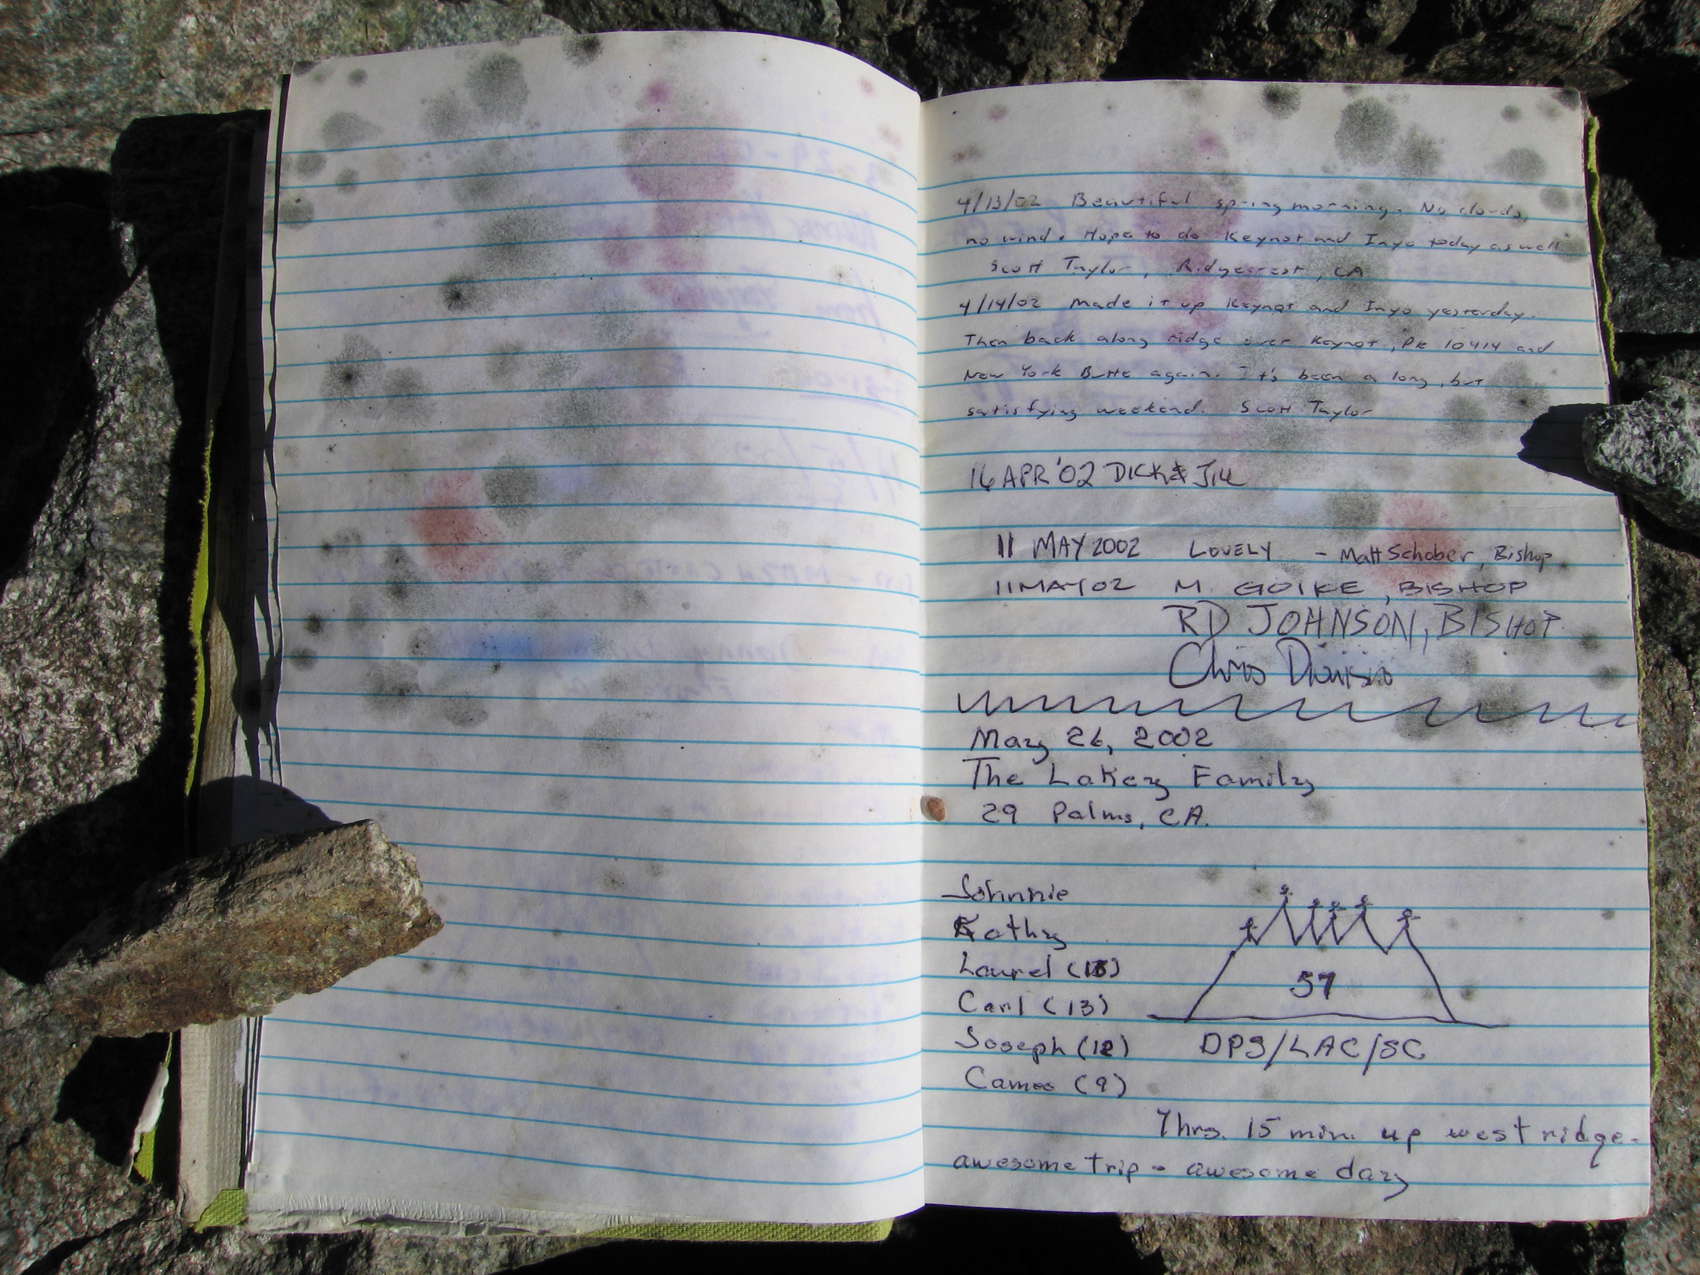 4/13/02 Beautiful spring morning. No clouds,
no wind. Hope to do Keynot and Inyo today as well
Scott Taylor, Ridgecrest, CA
4/14/02 Made it up Keynot and Inyo yesterday.
Then back along ridge over Keynot, Pk 10414 and
New York Butte again. It's been a long, but
satisfying weekend. Scott Taylor
16 APR '02 DICK & Jill
11 MAY 2002 LOVELY - Matt Schober, Bishop
11 MAY 02 M. GOIKE, BISHOP
RD JOHNSON, BISHOP
Chris
May 26, 2002
The Lakey Family
29 Palms, CA.
Johnnie
Kathy
Laurel
Carl (13)
Joseph (12)
Cameo (9)
57
DPS/LAC/SC
7hrs. 15 min. up west ridge-
awesome trip - awesome day